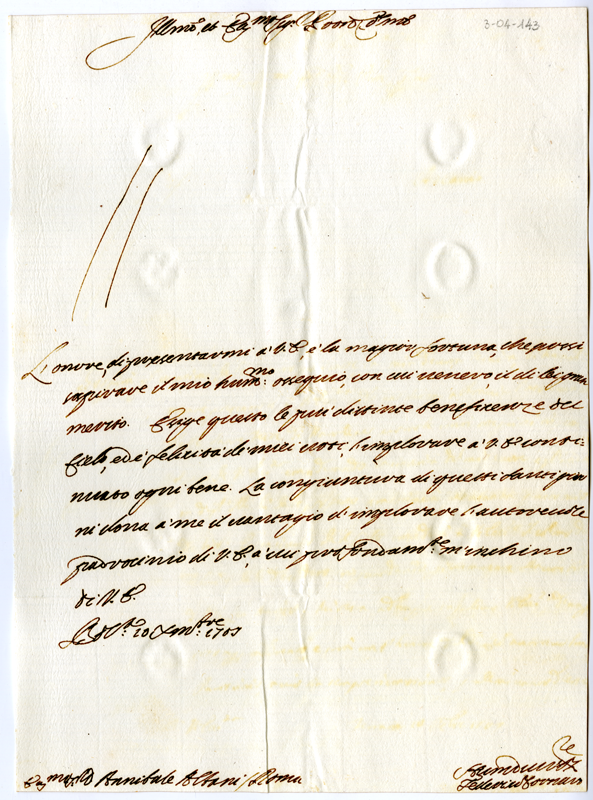 Illmo, et Ecc.mo Sig.r
3-04-143
L'onore, di presentarmi à V.E., è la maggior fortuna, che possi
sapirare il mio hum.mo ossequio, con cui venero, il di lei gran
merito. Esige questo le più distinte beneficenze del
Cielo, ed è felicità de miei voti, l'implorare à V.E. conti-
nuato ogni bene. La congiuntura di questi santi gior
ni dona à me il vantagio d'implorare l'autorevole
padrocinio di V.E., à cui profondam.te m'inchino
di V.E.
20 Xmbre 1705
Annibale Albani Roma
Federico Cornaro